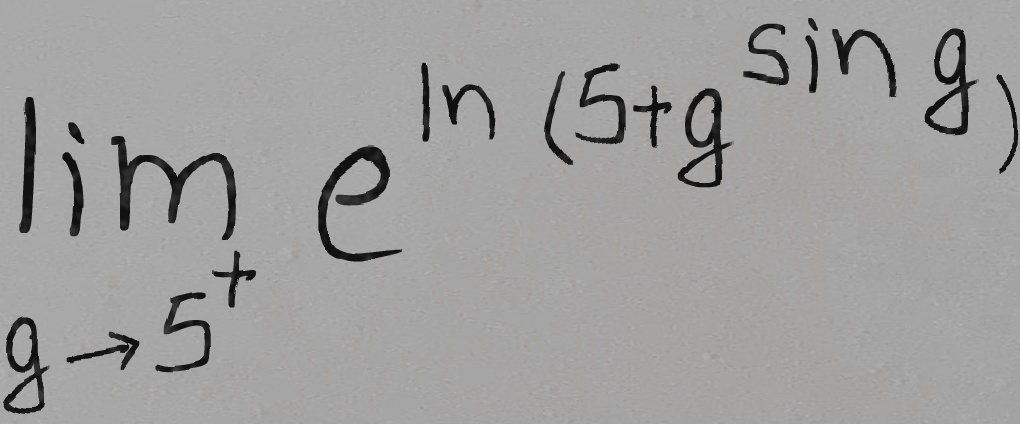 \lim_{g \to 5^+} e^{\ln (5+g^{\sin g})}